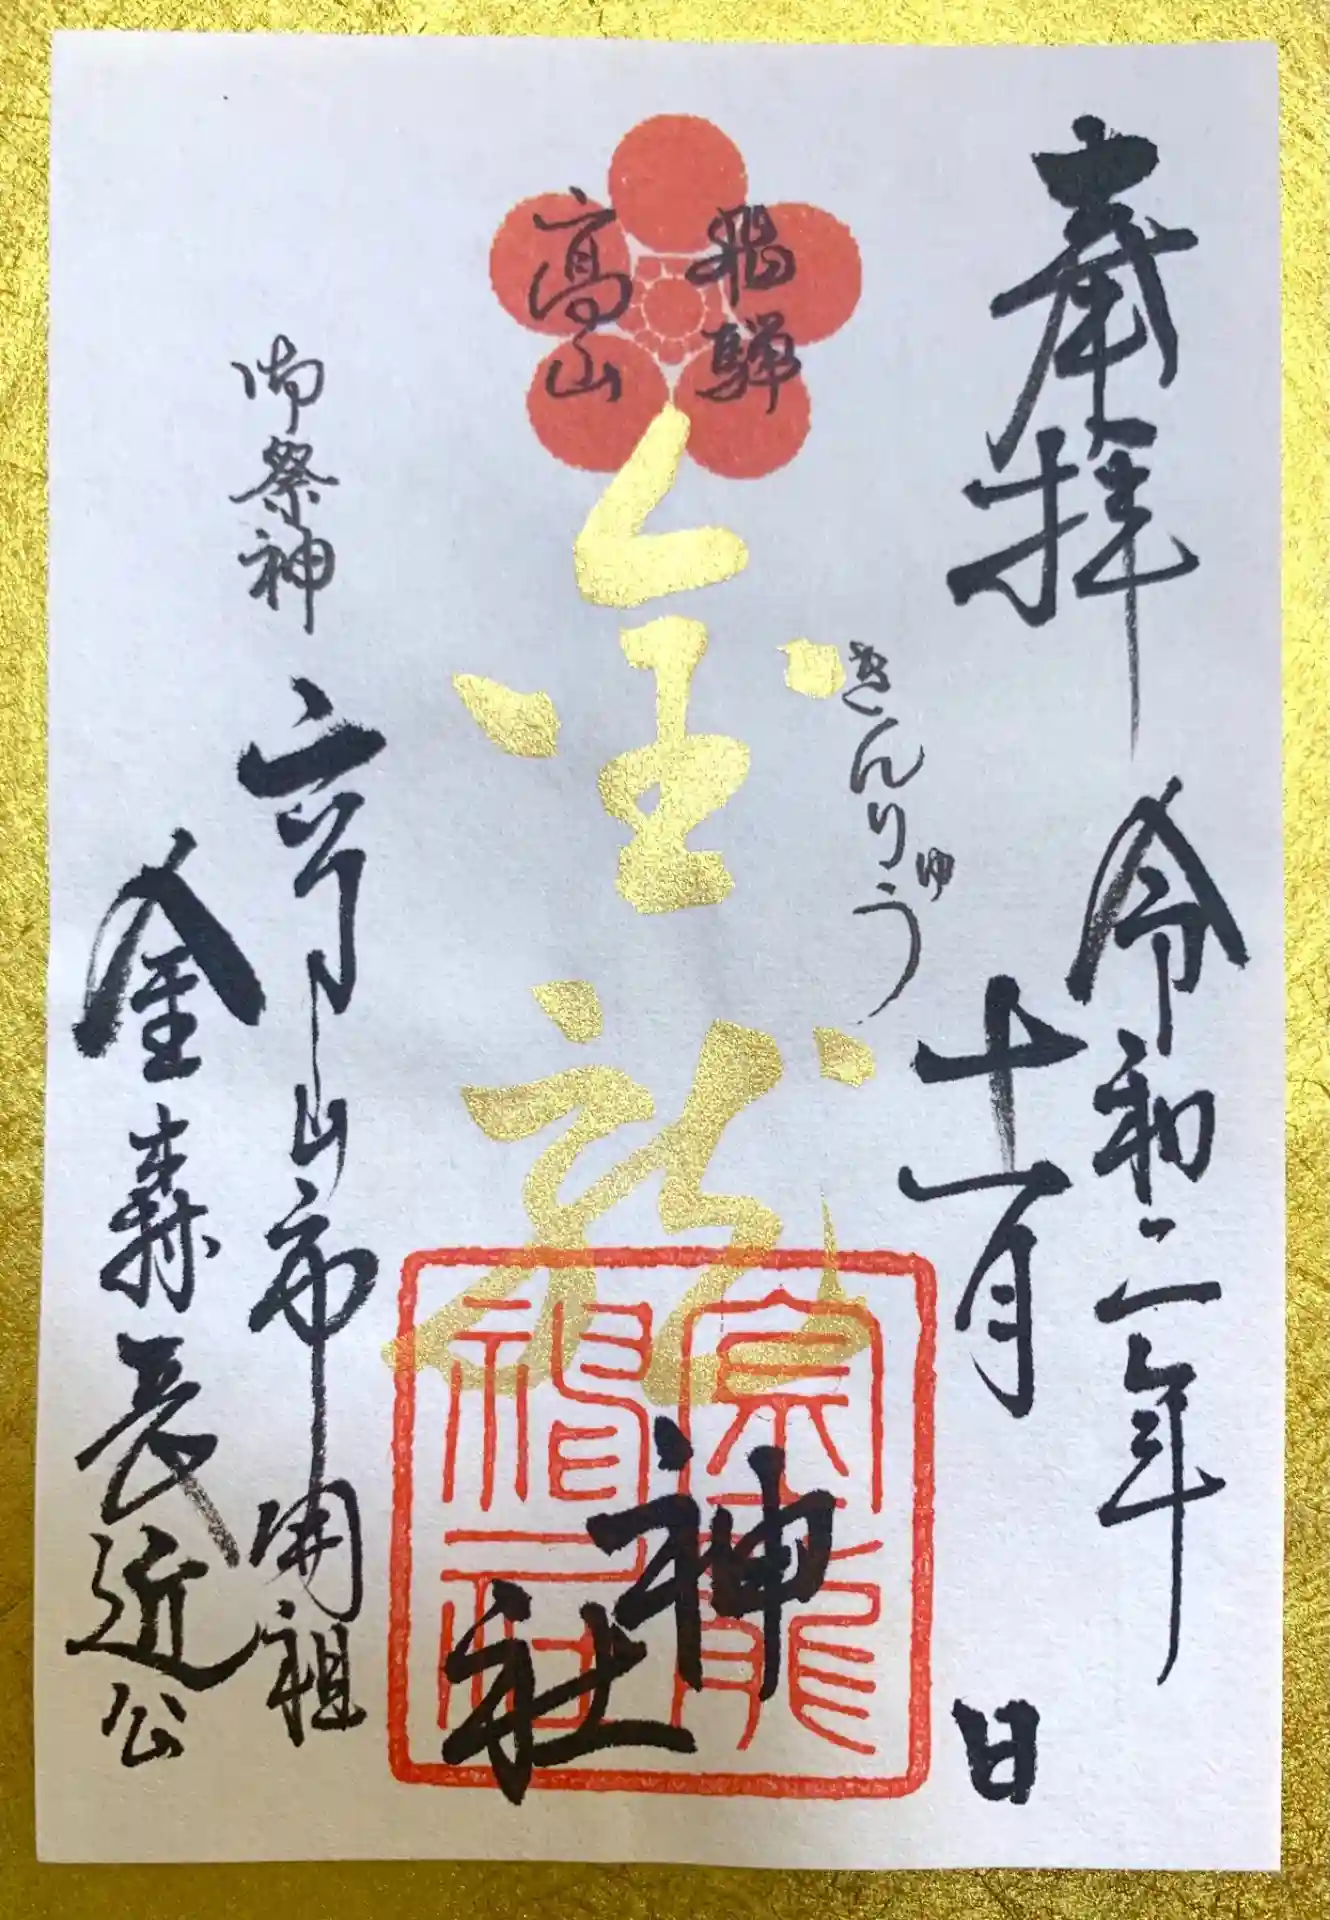 奉拝
令和二年
十一月
日
飛騨
高山
きんりゅう
金龍
神
社
御祭神
高山市開祖
金森長近公